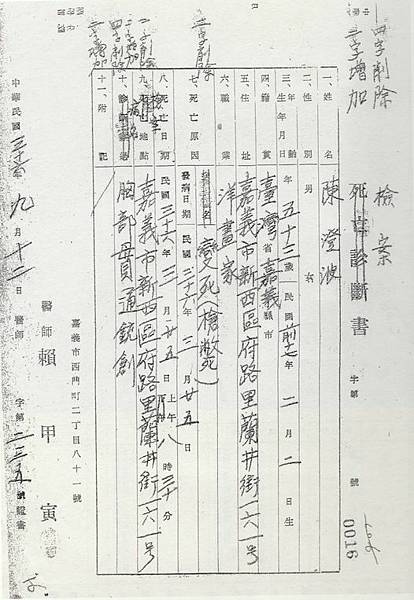 四字削除
三字增加
檢案
死亡診斷書 字第 號
0016
一、姓名 陳澄波
二、性別 男 女
三、年齡 生年月日 年五十三歲 民國前十七年二月二日生
四、籍貫 臺灣省嘉義縣市
五、住址 嘉義市新西區府路里蘭井街一六一号
六、職業 洋畫家
七、死亡原因 病名 變死(槍斃)
發病日期 民國三十六年三月廿五日
八、死亡日期 民國三十六年三月廿五日上午八時三十分
九、死亡地點 嘉義市新西區府路里蘭井街一六一号
十、 胸部貫通銃創
十一、附記
中華民國三十六年九月十二日
醫師 賴甲寅
醫師 字第二三五號證書
嘉義市西門町二丁目八十一號